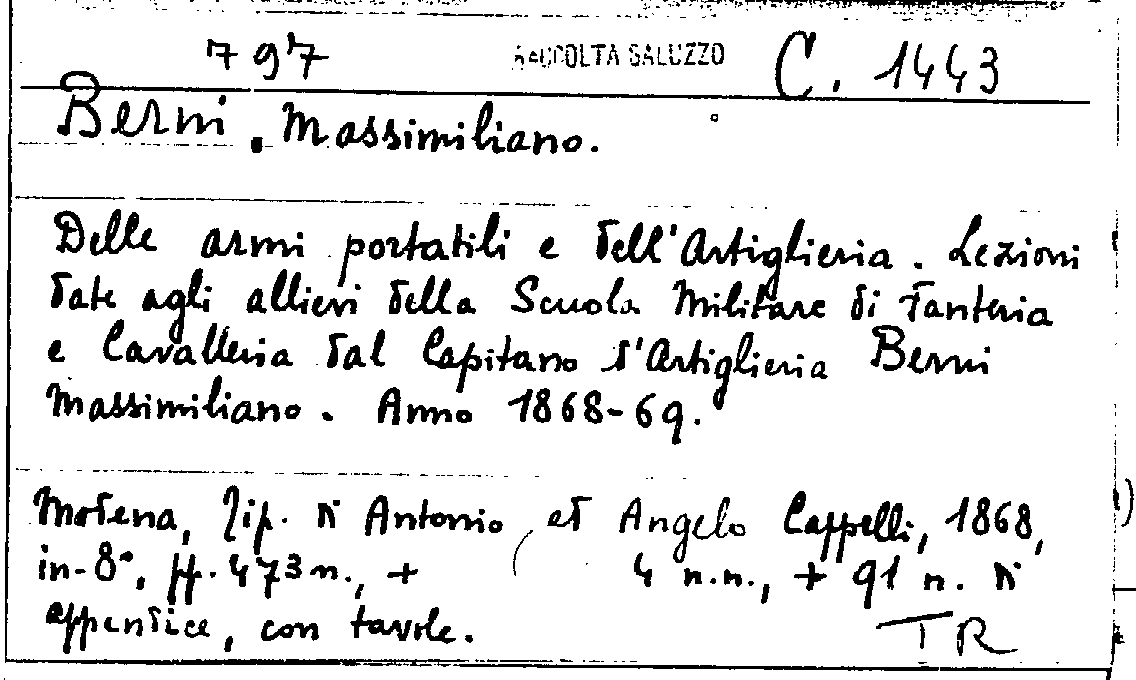 797 RACCOLTA SALUZZO C. 1443
Berni, Massimiliano.
Delle armi portatili e dell'Artiglieria. Lezioni
date agli allievi della Scuola Militare di Fanteria
e Cavalleria dal Capitano d'Artiglieria Berni
Massimiliano. Anno 1868-69.
Modena, Tip. di Antonio ed Angelo Cappelli, 1868,
in-8°, pp. 473 n., + 4 n.n., + 91 n. di
appendice, con tavole. TR